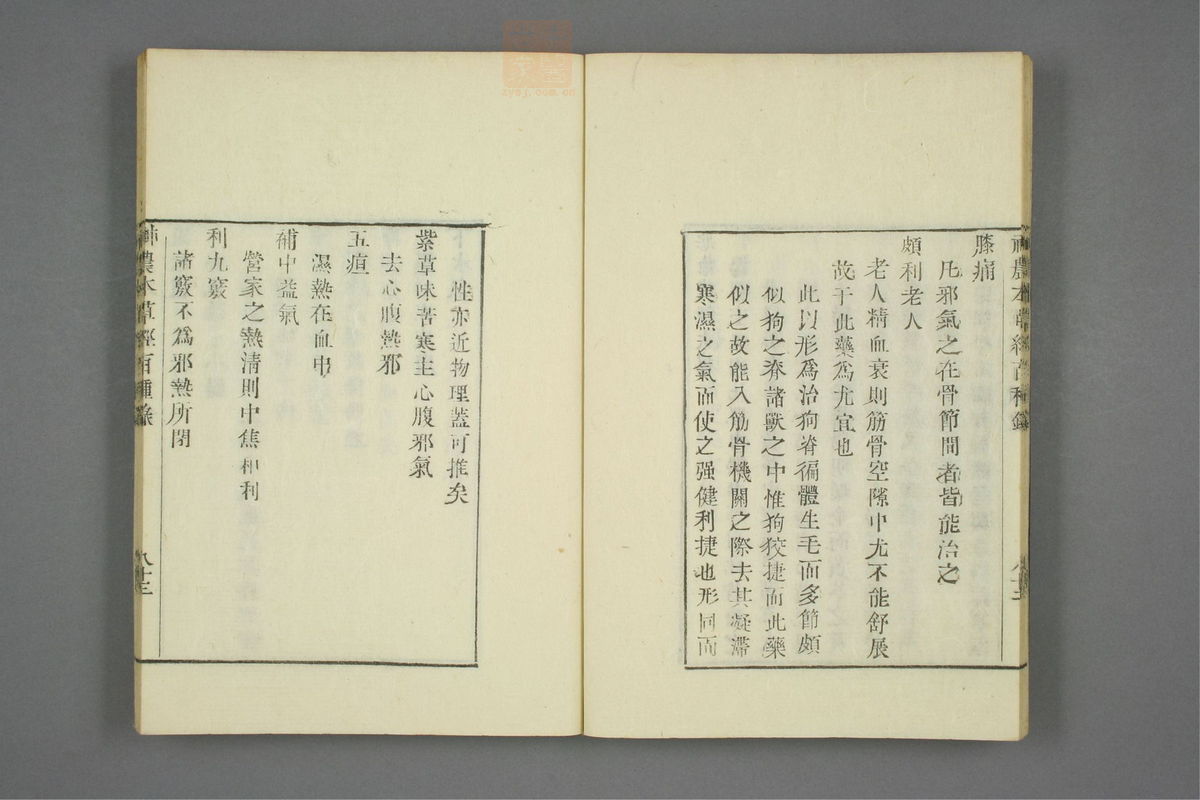 膝痛
凡邪氣之在骨節間者皆能治之
頗利老人
老人精血衰則筋骨空隙中尤不能舒展
故于此藥爲尤宜也
此以形爲治狗脊徧體生毛而多節頗
似狗之脊諸獸之中惟狗狡捷而此藥
似之故能入筋骨機關之際去其凝滯
寒濕之氣而使之强健利捷也形同而
性亦近物理蓋可推矣
紫草味苦寒主心腹邪氣
去心腹熱邪
五疸
濕熱在血中
補中益氣
營家之熱清則中焦和利
利九竅
諸竅不爲邪熱所閉
神農本草經百種錄
八十三
zysj.com.cn